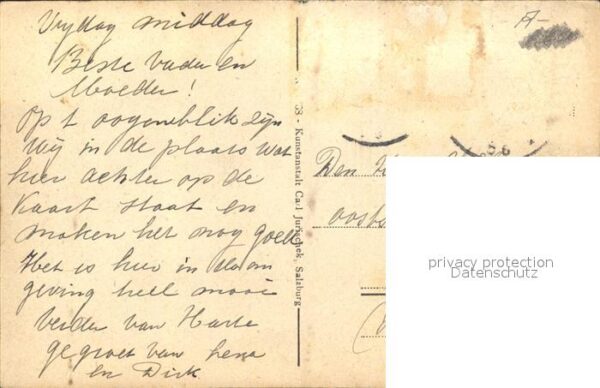 Vrijdag middag
Beste vader en
Moeder!
Op t oogenblik zijn
wij in de plaats wat
hier achter op de
kaart staat en
maken het nog goed
Het is hier in de om
geving heel mooi
verder van Harte
gegroet van Lena
en Dick
58 - Kunstanstalt Carl Jurischek, Salzburg
A-
Den
privacy protection
Datenschutz